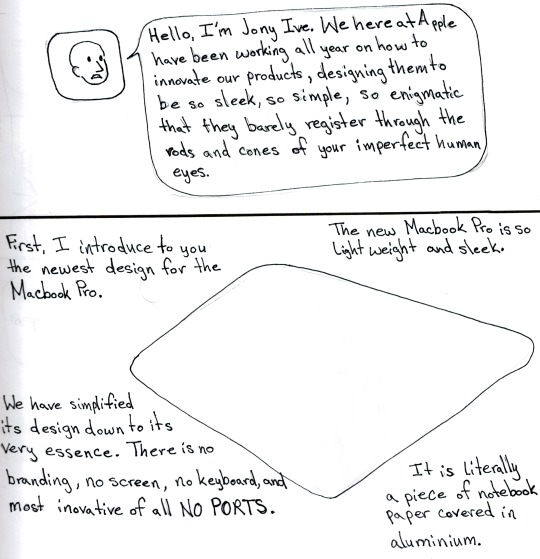 Hello, I'm Jony Ive. We here at Apple
have been working all year on how to
innovate our products, designing them to
be so sleek, so simple, so enigmatic
that they barely register through the
rods and cones of your imperfect human
eyes.
First, I introduce to you
the newest design for the
Macbook Pro.
The new Macbook Pro is so
light weight and sleek.
We have simplified
its design down to its
very essence. There is no
branding, no screen, no keyboard, and
most inovative of all NO PORTS.
It is literally
a piece of notebook
paper covered in
aluminium.